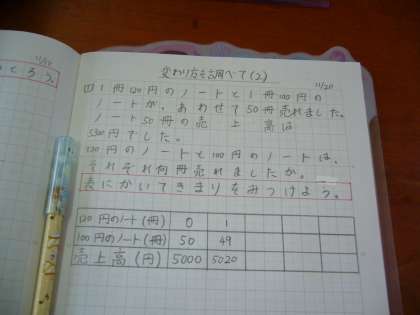 11/19
とろう。
変わり方を調べて(2)
11/20
1 1冊120円のノートと1冊100円の
ノートが、あわせて50冊売れました。
ノート50冊の売上高は
5300円でした。
120円のノートと100円のノートは、
それぞれ何冊売れましたか。
表にかいてきまりをみつけよう。
120円のノート(冊) 0 1
100円のノート(冊) 50 49
売上高(円) 5000 5020